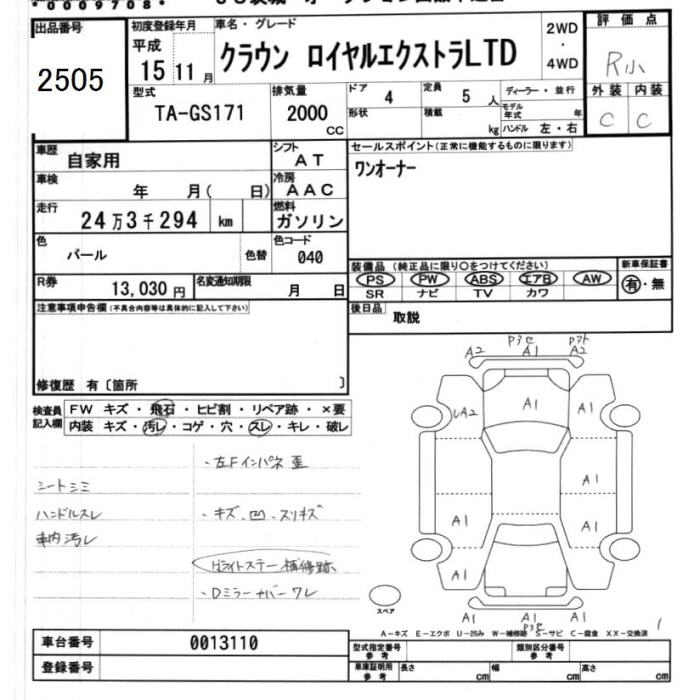 *0009708*
出品番号
2505
初度登録年月
平成
15年11月
車名・グレード
クラウン ロイヤルエクストラLTD
2WD
・
4WD
評価点
R小
外装 内装
C C
型式
TA-GS171
排気量
2000
CC
ドア
4
形状
定員
5人
積載
kg
ディーラー・並行
モデル年式 年
ハンドル 左・右
車歴
自家用
シフト
AT
車検
年 月( 日)
冷房
AAC
走行
24万3千294 km
燃料
ガソリン
色
パール
色替
色コード
040
R券
13,030円
名変通知期限
月 日
セールスポイント(正常に機能するものに限ります)
ワンオーナー
装備品(純正品に限り○をつけてください)
PS PW ABS エアB AW
SR ナビ TV カワ
新車保証書
有・無
後日品
取説
注意事項申告欄(不具合内容等は具体的に記入して下さい)
修復歴 有〔箇所 〕
検査員
記入欄
FW キズ・飛石・ヒビ割・リペア跡・×要
内装 キズ・汚レ・コゲ・穴・スレ・キレ・破レ
・左Fインパネ歪
シートシミ
ハンドルスレ
・キズ、凹、スリキズ
車内汚レ
ライトステー補修跡
・Dミラーカバーワレ
A2 A1 A2
A1
A2 A1
A1
A1 A1
A1
A1 A1
スペア
A-キズ E-エクボ U-凹み W-補修跡 S-サビ C-腐食 XX-交換済
車台番号
0013110
登録番号
型式指定番号
参考
類別区分番号
参考
車庫証明用
参考
長さ cm
幅 cm
高さ cm